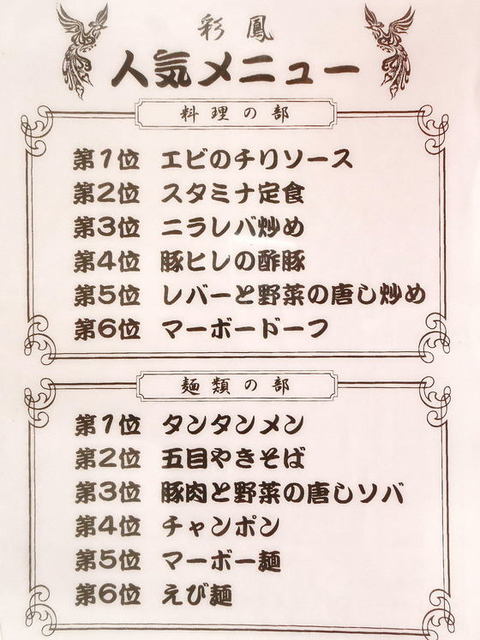 彩鳳
人気メニュー
料理の部
第1位 エビのチリソース
第2位 スタミナ定食
第3位 ニラレバ炒め
第4位 豚ヒレの酢豚
第5位 レバーと野菜の唐し炒め
第6位 マーボードーフ
麺類の部
第1位 タンタンメン
第2位 五目やきそば
第3位 豚肉と野菜の唐しソバ
第4位 チャンポン
第5位 マーボー麺
第6位 えび麺